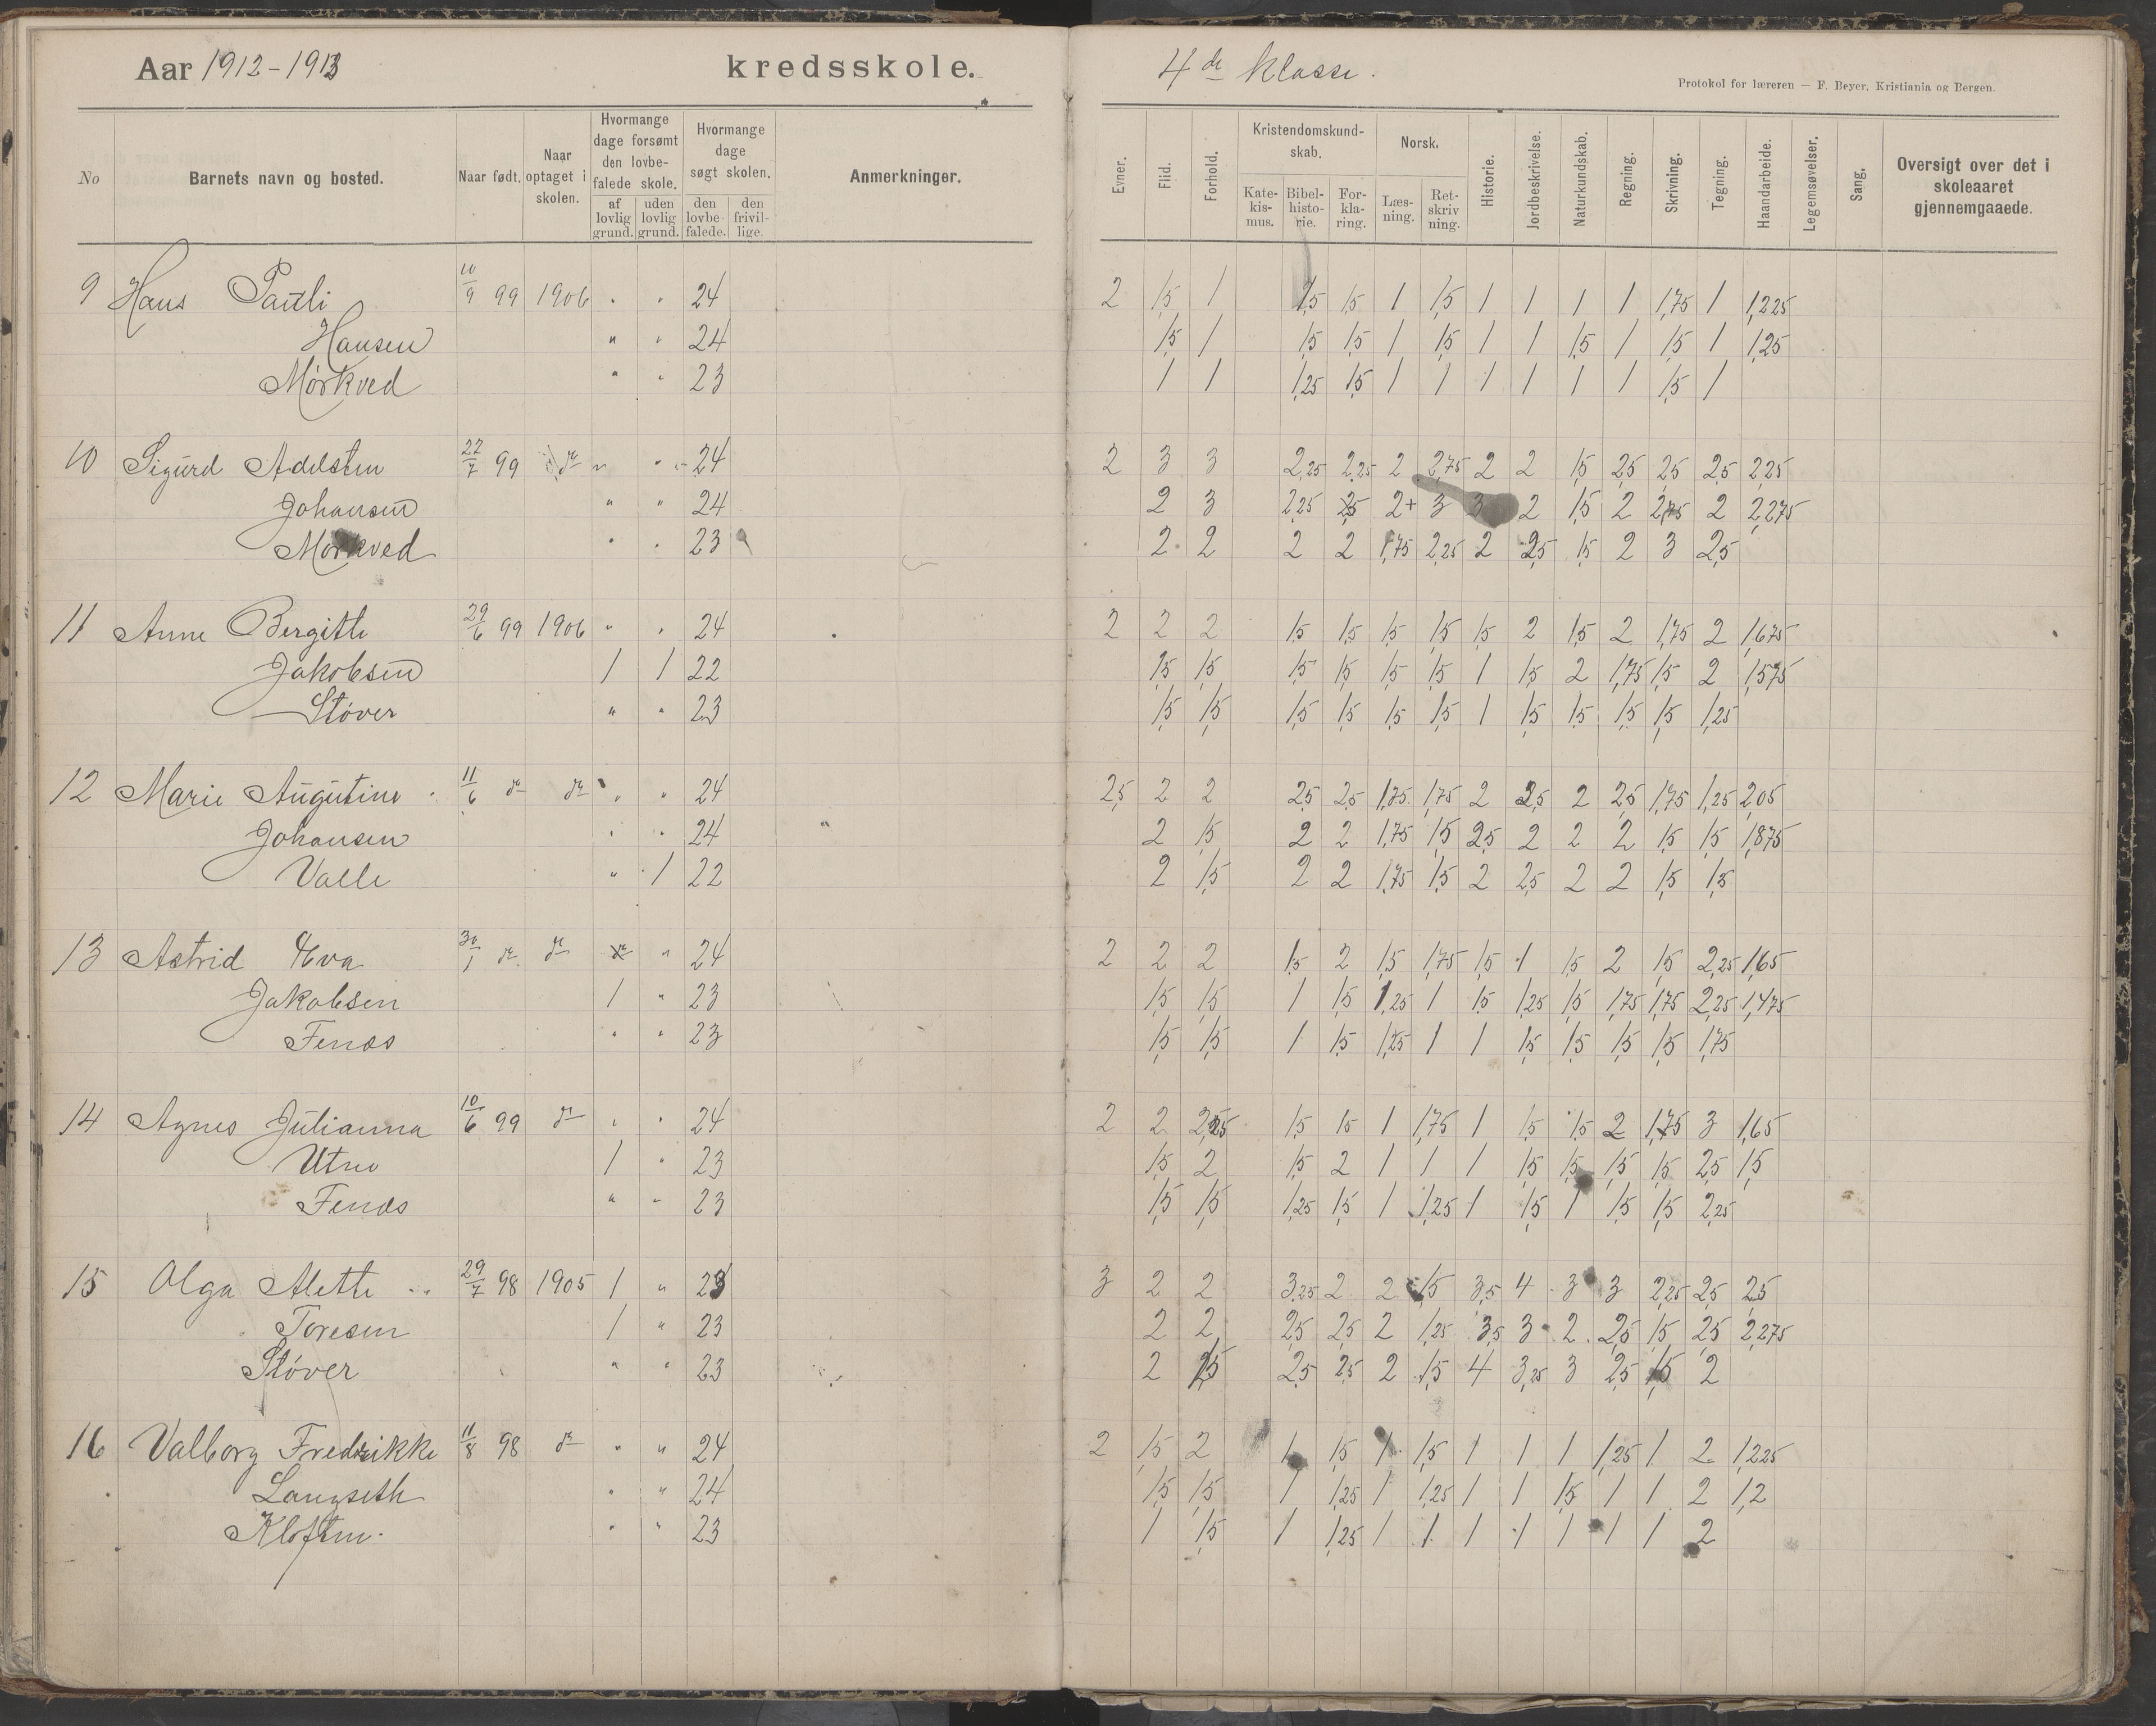 Aar 1912-1913 kredsskole. 4de klasse.
Protokol for læreren — F. Beyer, Kristiania og Bergen.
No Barnets navn og bosted. Naar født. Naar optaget i skolen. Hvormange dage forsømt den lovbefalede skole. af lovlig grund. uden lovlig grund. Hvormange dage søgt skolen. den lovbefalede. den frivillige. Anmerkninger. Evner. Flid. Forhold. Kristendomskundskab. Katekismus. Bibelhistorie. Forklaring. Norsk. Læsning. Retskrivning. Historie. Jordbeskrivelse. Naturkundskab. Regning. Skrivning. Tegning. Haandarbeide. Legemsøvelser. Sang. Oversigt over det i skoleaaret gjennemgaaede.
9 Hans Pauli 10/9 99 1906 " " 24 2 1,5 1 1,5 1,5 1 1,5 1 1 1 1 1,75 1 1,225
Hansen " " 24 1,5 1 1,5 1,5 1 1,5 1 1 1,5 1 1,5 1 1,25
Mörkved " " 23 1 1 1,25 1,5 1 1 1 1 1 1 1,5 1
10 Sigurd Adelsten 22/7 99 do " " 24 2 3 3 2,25 2,25 2 2,75 2 2 1,5 2,5 2,5 2,5 2,25
Johansen " " 24 2 3 2,25 2,5 2+ 3 3 2 1,5 2 2,75 2 2,275
Mörkved " " 23 2 2 2 2 1,75 2,25 2 2,5 1,5 2 3 2,5
11 Anne Bergitte 29/6 99 1906 " " 24 2 2 2 1,5 1,5 1,5 1,5 1,5 2 1,5 2 1,75 2 1,675
Jakobsen 1 1 22 1,5 1,5 1,5 1,5 1,5 1,5 1 1,5 2 1,75 1,5 2 1,575
Stöver " " 23 1,5 1,5 1,5 1,5 1,5 1,5 1 1,5 1,5 1,5 1,5 1,25
12 Marie Augutine 11/6 do do " " 24 2,5 2 2 2,5 2,5 1,75 1,75 2 2,5 2 2,5 1,75 1,25 2,05
Johansen " " 24 2 1,5 2 2 1,75 1,5 2,5 2 2 2 1,5 1,5 1,875
Valle " 1 22 2 1,5 2 2 1,75 1,5 2 2,5 2 2 1,5 1,5
13 Astrid Eva 30/1 do do " 24 2 2 2 1,5 2 1,5 1,75 1,5 1 1,5 2 1,5 2,25 1,65
Jakobsen 1 " 23 1,5 1,5 1 1,5 1,25 1 1,5 1,25 1,5 1,75 1,75 2,25 1,475
Fenes " " 23 1,5 1,5 1 1,5 1,25 1 1 1,5 1,5 1,5 1,5 1,75
14 Agnes Julianna 10/6 99 do " " 24 2 2 2,25 1,5 1,5 1 1,75 1 1,5 1,5 2 1,75 3 1,65
Utne 1 " 23 1,5 2 1,5 2 1 1 1 1,5 1,5 1,5 1,5 2,5 1,5
Fenes " " 23 1,5 1,5 1,25 1,5 1 1,25 1 1,5 1 1,5 1,5 2,25
15 Olga Alette 29/7 98 1905 1 " 23 3 2 2 3,25 2 2 1,5 3,5 4 3 3 2,25 2,5 2,5
Toresen 1 " 23 2 2 2,5 2,5 2 1,25 3,5 3 2 2,5 1,5 2,5 2,275
Stöver " " 23 2 1,5 2,5 2,5 2 1,5 4 3,25 3 2,5 1,5 2
16 Valborg Fredrikke 11/8 98 do " " 24 2 1,5 2 1 1,5 1 1,5 1 1 1 1,25 1 2 1,225
Langseth " " 24 1,5 1,5 1 1,25 1 1,25 1 1 1,5 1 1 2 1,2
Kloften. " " 23 1 1,5 1 1,25 1 1 1 1 1 1 1 2